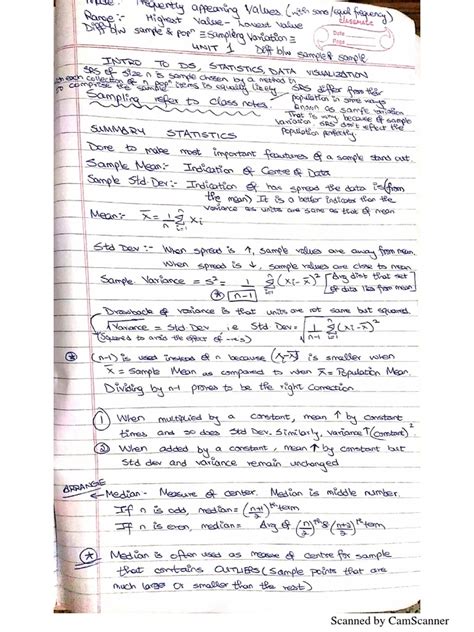 Mode: Frequently appearing Values (with same/equal frequency)
Range:- Highest Value - Lowest Value
classmate
Date
Page
Diff b/w sample & popn ≡ Sampling Variation ≡
Diff b/w sample & sample
UNIT 1
INTRO TO DS, STATISTICS, DATA VISUALIZATION
SRS of size n is sample chosen by a method in
which each collection of n items is equally likely
to comprise the sample
Sampling refer to class notes.
SRS differ from their
population in some ways
known as sample variation
That is why because of sample
variation SRS's don't reflect the
population perfectly
SUMMARY STATISTICS
Done to make most important features of a sample stand out.
Sample Mean:- Indication of Centre of Data
Sample Std Dev:- Indication of has spread the data is (from
the mean) It is a better indicator than the
variance as units are same as that of mean
Mean:- x̄ = 1/n Σ xi
Std Dev:- When spread is ↑, sample values are away from mean.
When spread is ↓, sample values are close to mean.
Sample Variance = S² = 1/(n-1) Σ (xi - x̄)² [Avg dist that set of data lies from mean]
Drawback of variance is that units are not same but squared.
√Variance = Std Dev i.e Std Dev = √(1/(n-1) Σ (xi - x̄)²)
(Squares to avoid the effect of -ves)
(n-1) is used instead of n because is smaller when
X̄ = Sample Mean as compared to when X̄ = Population Mean.
Dividing by n-1 proves to be the right correction.
① When multiplied by a constant, mean ↑ by constant
times and so does Std Dev. Similarly, variance ↑ (constant)²
② When added by a constant, mean ↑ by constant but
Std dev and variance remain unchanged
ARRANGE
Median - Measure of center. Median is middle number.
If n is odd, median = ((n+1)/2)th term
If n is even, median = Avg of (n/2)th & (n+2/2)th term
Median is often used as measure of centre for sample
that contains OUTLIERS (Sample points that are
much large or smaller than the rest)
Scanned by CamScanner